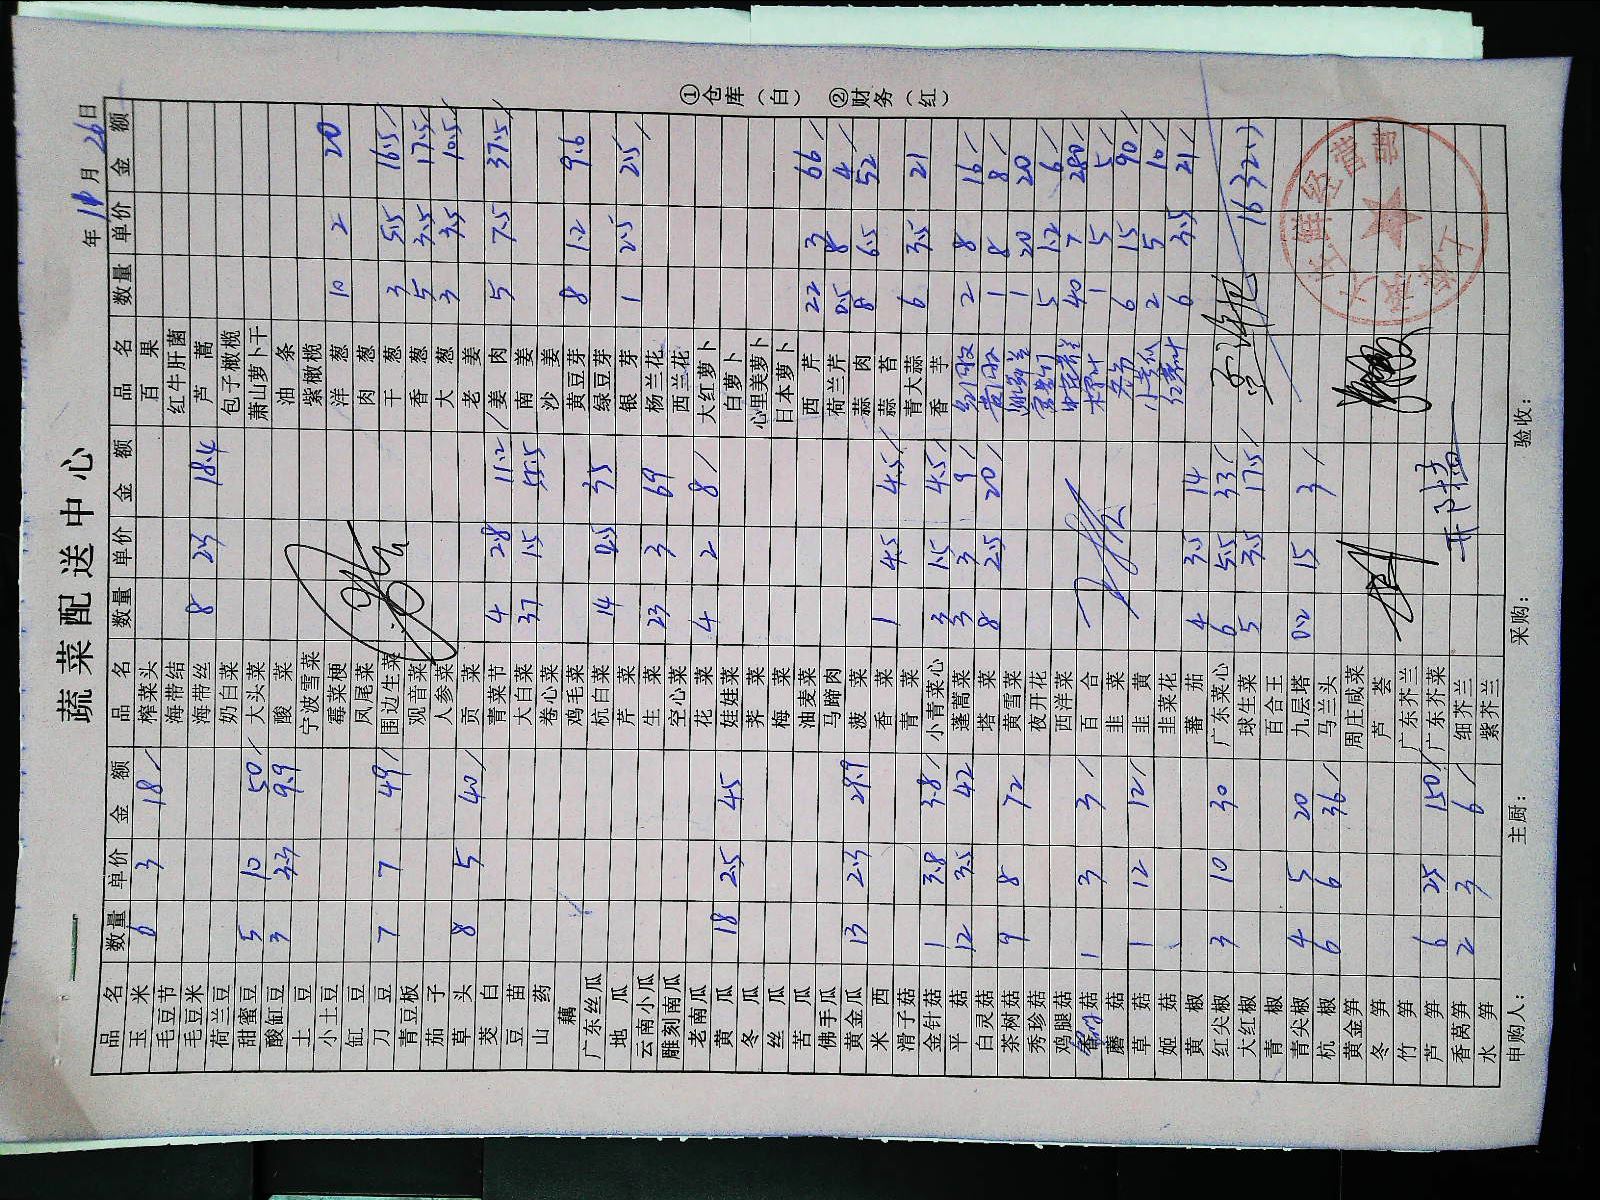 蔬菜配送中心
年 11月 26日
品名 数量 单价 金额 品名 数量 单价 金额 品名 数量 单价 金额
玉米 6 3 18 榨菜头 百果
毛豆节 海带结 红牛肝菌
毛豆米 海带丝 8 2.3 18.4 芦蒿
荷兰豆 奶白菜 包子橄榄
甜蜜豆 5 10 50 大头菜 萧山萝卜干
酸缸豆 3 3.3 9.9 酸菜 油条
土豆 宁波雪菜 紫橄榄
小土豆 霉菜梗 洋葱 10 2 20
缸豆 凤尾菜 肉葱
刀豆 7 7 49 围边生菜 干葱 3 5.5 16.5
青豆板 观音菜 香葱 5 3.5 17.5
茄子 人参菜 大葱 3 3.5 10.5
草头 8 5 40 贡菜 老姜
茭白 青菜节 4 2.8 11.2 姜肉 5 7.5 37.5
豆苗 大白菜 37 1.5 55.5 南姜
山药 卷心菜 沙姜
藕 鸡毛菜 黄豆芽 8 1.2 9.6
广东丝瓜 杭白菜 14 2.5 35 绿豆芽
地瓜 芹菜 银芽 1 2.5 2.5
云南小瓜 生菜 23 3 69 杨兰花
雕刻南瓜 空心菜 西兰花
老南瓜 花菜 4 2 8 大红萝卜
黄瓜 18 2.5 45 娃娃菜 白萝卜
冬瓜 荠菜 心里美萝卜
丝瓜 梅菜 日本萝卜
苦瓜 油麦菜 西芹 22 3 66
佛手瓜 马蹄肉 荷兰芹 0.5 8 4
黄金瓜 13 2.3 29.9 菠菜 蒜肉 8 6.5 52
米西 香菜 1 4.5 4.5 蒜苔
滑子菇 青菜 青大蒜 6 3.5 21
金针菇 1 3.8 3.8 小青菜心 3 1.5 4.5 香芋
平菇 12 3.5 42 蓬蒿菜 3 3 9 2 8 16
白灵菇 塔菜 8 2.5 20 1 8 8
茶树菇 9 8 72 黄雪菜 1 20 20
秀珍菇 夜开花 5 1.2 6
鸡腿菇 西洋菜 40 7 280
菇 1 3 3 百合 1 5 5
蘑菇 韭菜 6 15 90
草菇 1 12 12 韭黄 2 5 10
姬菇 韭菜花 6 3.5 21
黄椒 蕃茄 4 3.5 14
红尖椒 3 10 30 广东菜心 6 5.5 33
大红椒 球生菜 5 3.5 17.5 1632.7
青椒 百合王
青尖椒 4 5 20 九层塔 0.2 15 3
杭椒 6 6 36 马兰头
黄金笋 周庄咸菜
冬笋 芦荟
竹笋 广东芥兰
芦笋 6 25 150 广东芥菜
香莴笋 2 3 6 细芥兰
水笋 紫芥兰
申购人： 主厨： 采购： 验收：
①仓库（白） ②财务（红）